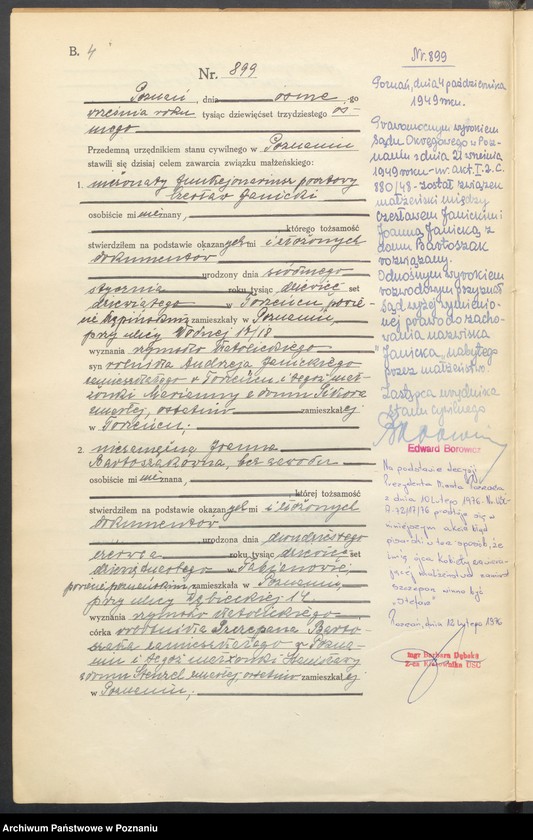 B. 4
Nr. 899
Poznań, dnia ósme go
września roku tysiąc dziewięćset trzydziestego ós-
mego
Przedemną urzędnikiem stanu cywilnego w Poznaniu
stawili się dzisiaj celem zawarcia związku małżeńskiego:
1. nieżonaty funkcjonariusz pocztowy
Czesław Janicki
osobiście mi nieznany,
którego tożsamość
stwierdziłem na podstawie okazanych mi i złożonych
dokumentów
urodzony dnia siódmego
stycznia roku tysiąc dziewięć set
dziewiątego w
zamieszkały w Poznaniu,
przy ulicy Wodnej 17/18
wyznania rzymsko katolickiego
syn rolnika Andrzeja Janickiego
zamieszkałego w i tegoż mał-
żonki Marianny z domu Sikora
zmarłej, ostatnio zamieszkałej
w
2. niezamężna Joanna
Bartoszakówna, bez zawodu
osobiście mi nieznana,
której tożsamość
stwierdziłem na podstawie okazanych mi i złożonych
dokumentów
urodzona dnia dwudziestego
czerwca roku tysiąc dziewięć set
dziewiątego w
powiecie poznańskim, zamieszkała w Poznaniu,
przy ulicy Dębieckiej 14
wyznania rzymsko katolickiego
córka robotnika Szczepana Barto-
szaka zamieszkałego w Pozna-
niu i tegoż małżonki Stanisławy
z domu zmarłej, ostatnio zamieszkałej
w Poznaniu,
Nr. 899
Poznań, dnia 4 października
1949 roku.
Prawomocnym wyrokiem
Sądu Okręgowego w Poz-
naniu z dnia 21 września
1949 roku - nr. akt. I. 2. C.
880/48 - został związek
małżeński między
Czesławem Janickim i
Joanną Janicką z
domu Bartoszak
rozwiązany.
Odnośnym wyrokiem
rozwodowym przyznał
Sąd wyżej wymienio-
nej prawo do zacho-
wania nazwiska
"Janicka" nabytego
przez małżeństwo.
Zastępca urzędnika
stanu cywilnego
Edward Borowicz
Na podstawie decyzji
Prezydenta Miasta Poznania
z dnia 10 lutego 1976 Nr
prostuje się w
niniejszym akcie błąd
pisarski w ten sposób, że
imię ojca kobiety zawie-
rającej małżeństwo zamiast
Szczepan winno być
"Stefan"
Poznań, dnia 12 lutego 1976
mgr Barbara Dębska
Z-ca Kierownika USC
Archiwum Państwowe w Poznaniu